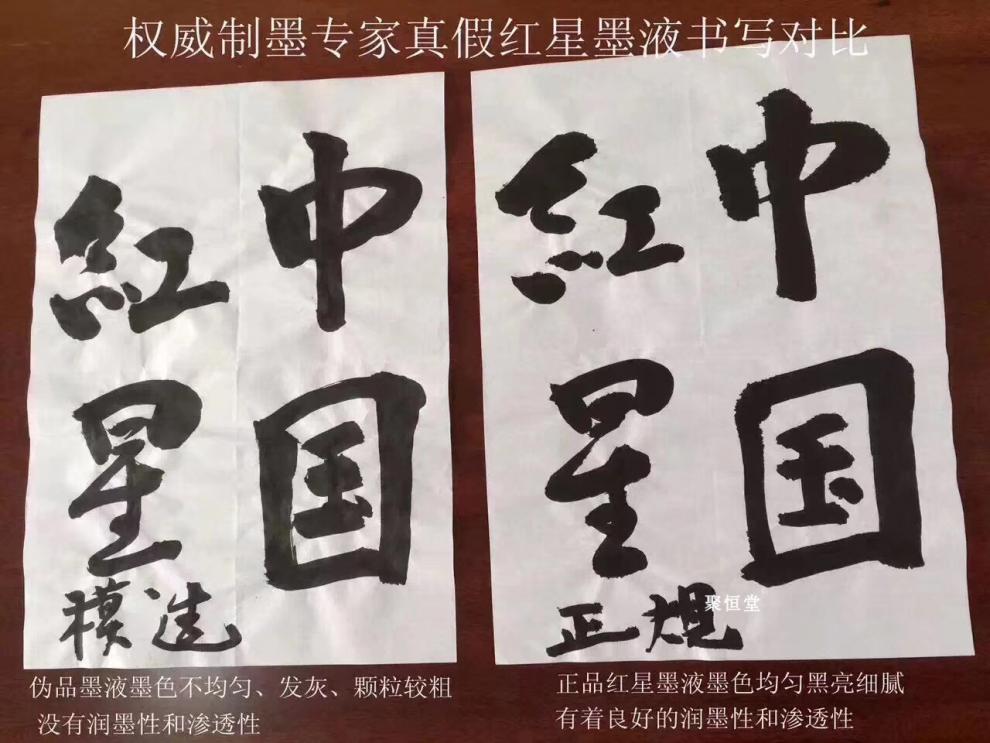 权威制墨专家真假红星墨液书写对比
中国
紅星
模造
中国
紅星
正規
聚恒堂
伪品墨液墨色不均匀、发灰、颗粒较粗
没有润墨性和渗透性
正品红星墨液墨色均匀黑亮细腻
有着良好的润墨性和渗透性